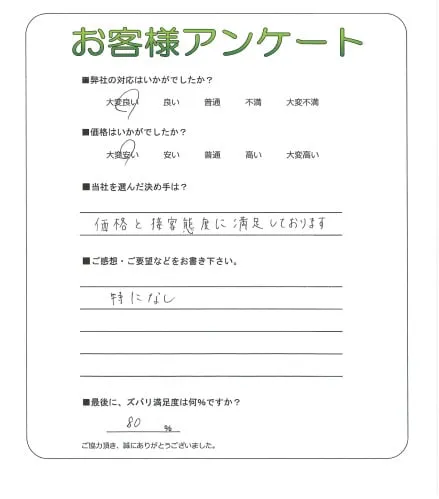 お客様アンケート
■弊社の対応はいかがでしたか？
大変良い 良い 普通 不満 大変不満
■価格はいかがでしたか？
大変安い 安い 普通 高い 大変高い
■当社を選んだ決め手は？
価格と接客態度に満足しております
■ご感想・ご要望などをお書き下さい。
特になし
■最後に、ズバリ満足度は何%ですか？
80 %
ご協力頂き、誠にありがとうございました。